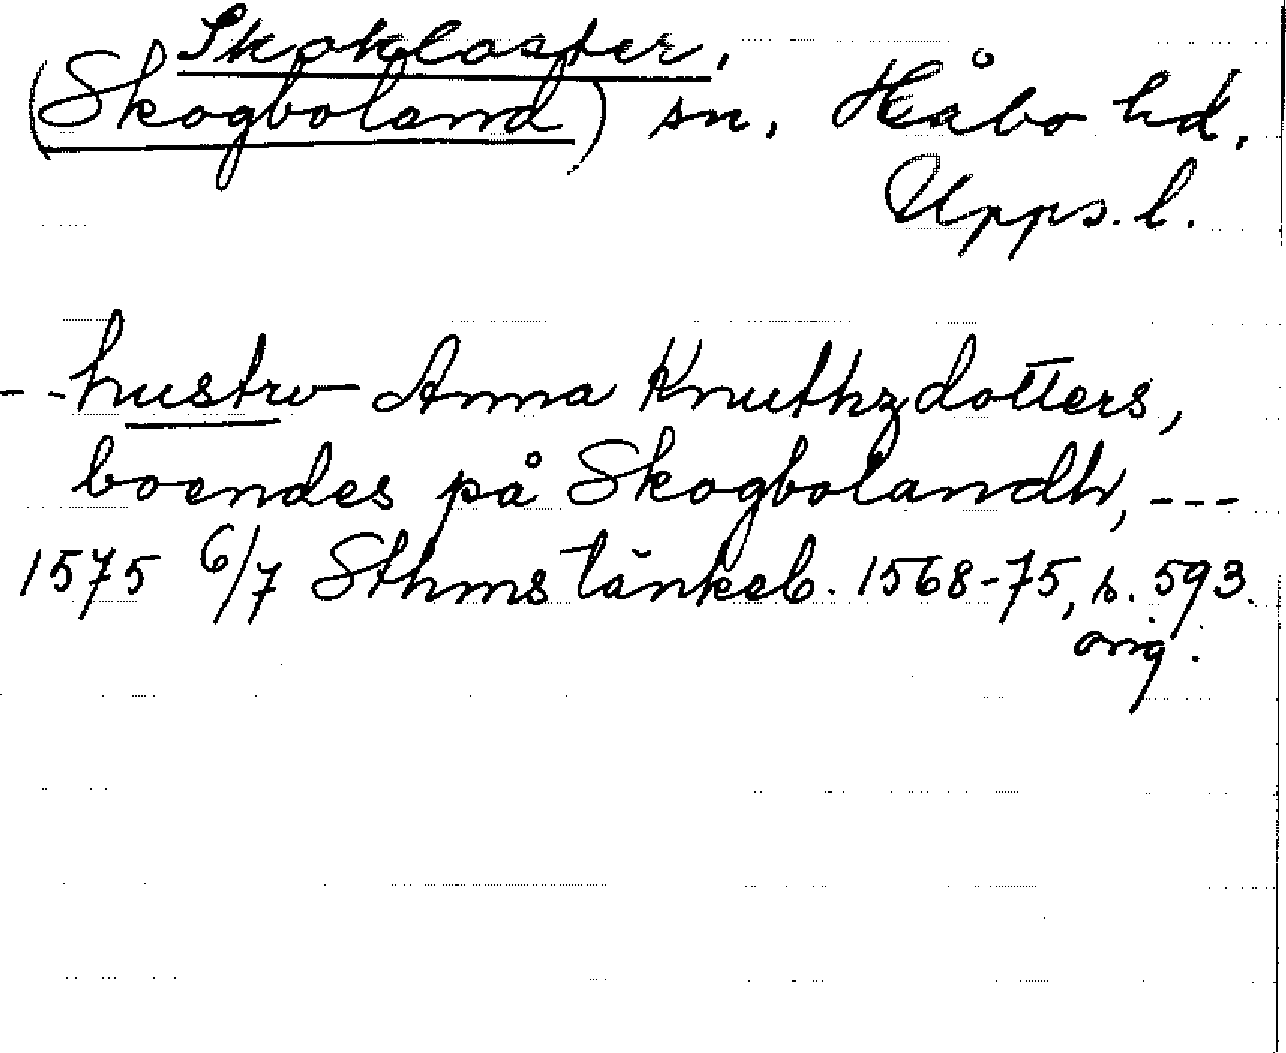 Skokloster,
(Skogboland) sn. Håbo hd.
Upps. l.
- - hustrv Anna Knuthzdotters,
boendes på Skogbolandh, ---
1575 6/7 Sthms tänkeb. 1568-75, s. 593.
orig.